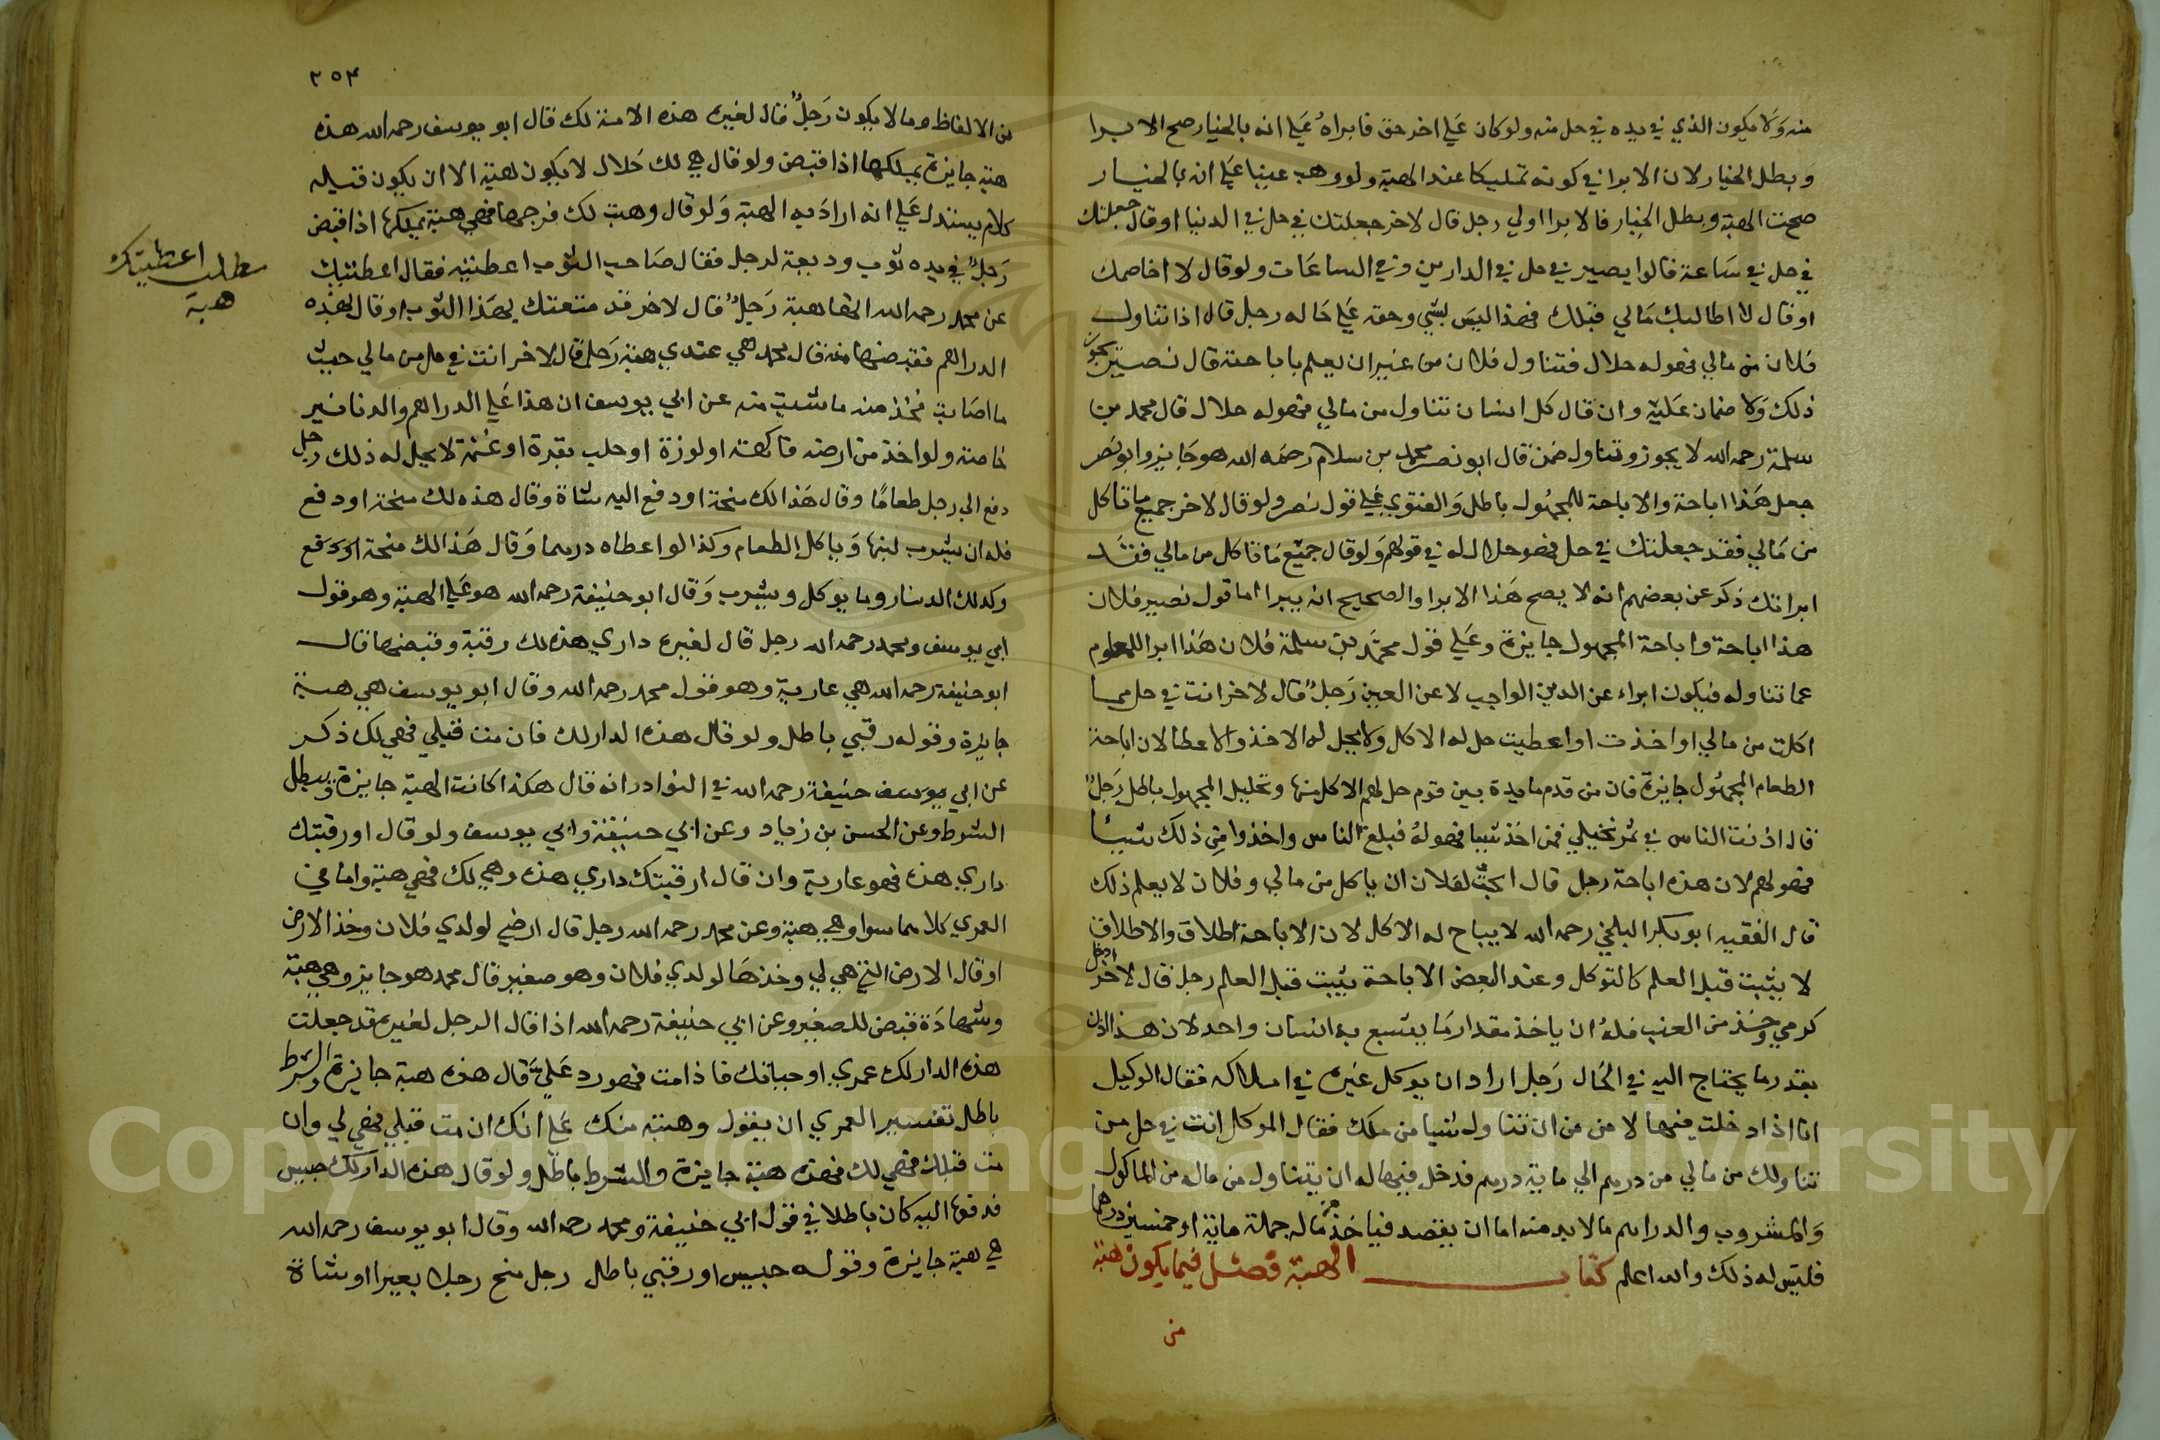 منه ولا يكون الذي في يده في حل منه ولو كان على اخر حق فابراه على انه بالخيار صح الابرا
وبطل الخيار لان الابرا في كونه تمليكا عند الهبة ولو وهب عينا على انه بالخيار
صحت الهبة وبطل الخيار فالابرا اولي رجل قال لاخر جعلتك في حل في الدنيا او قال جعلتك
في حل في ساعة قالوا يصير في حل في الدارين وفي الساعات ولو قال لا اخاصمك
او قال لا اطالبك مالي قبلك فهذا ليس بشي وحقه على حاله رجل قال اذا تناول
فلان من مالي فهو له حلال فتناول فلان من غير ان يعلم باباحته قال نصير يجوز
ذلك ولا ضمان عليه وان قال كل انسان تناول من مالي فهو له حلال قال محمد بن
سلمة رحمه الله لا يجوز وتناول ضمن قال ابو نصر محمد بن سلام رحمه الله هو جايز وابو نصر
جعل هذا اباحة والاباحة للمجهول باطل والفتوي على قول نصر ولو قال لاخر جميع ما تاكل
من مالي فقد جعلتك في حل فهو حلال له في قولهم ولو قال جميع ما تاكل من مالي فقد
ابراتك ذكر عن بعضهم انه لا يصح هذا الابرا والصحيح انه يبرا اما قول نصير فلان
هذا اباحة واباحة المجهول جايزة وعلي قول محمد بن سلمة فلان هذا ابرا للمعلوم
عما تناوله فيكون ابراء عن الدين الواجب لا عن العين رجل قال لاخر انت في حل مما
اكلت من مالي او اخذت او اعطيت حل له الاكل ولا يحل له الاخذ والاعطا لان اباحة
الطعام المجهول جايزة فان من قدم مايدة بين قوم حل لهم الاكل منها وتحليل المجهول باطل رجل
قال اذنت الناس في ثمر نخيلي فمن اخذ شيا فهو له فبلغ الناس واخذوا من ذلك شيأ
فهو لهم لان هذه اباحة رجل قال ابحت لفلان ان ياكل من مالي وفلان لا يعلم ذلك
قال الفقيه ابو بكر البلخي رحمه الله لا يباح له الاكل لان الاباحة اطلاق والاطلاق
لا يثبت قبل العلم كالتوكل وعند البعض الاباحة يثبت قبل العلم رجل قال لاخر ادخل
كرمي وخذ من العنب فله ان ياخذ مقدار ما يشبع به انسان واحد لان هذا اذن
بقدر ما يحتاج اليه في الحال رجل اراد ان يوكل غيره في املاكه فقال الوكيل
انا اذا دخلت فيها لا من من ان تناول شيا من ملك فقال الموكل انت في حل من
تناولك من مالي من درهم الي ماية درهم فدخل فيها له ان يتناول من ماله من الماكول
والمشروب والدراهم ما لا بد منه اما ان يقصد فياخذ من ماله جملة ماية او خمسين درهما
فليس له ذلك والله اعلم كتاب الهبة فصل فيما يكون هبة
من
٢٥٣
من الالفاظ وما لا يكون رجل قال لغيره هذه الامة لك قال ابو يوسف رحمه الله هذه
هبة جايزة يملكها اذا قبض ولو قال هي لك حلال لا يكون هبة الا ان يكون قبله
كلام يستدل على انه اراد به الهبة ولو قال وهبت لك فرجها فهي هبة يملكها اذا قبض
رجل في يده ثوب وديعة لرجل فقال صاحب الثوب اعطنيه فقال اعطيتك
عن محمد رحمه الله انها هبة رجل قال لاخر قد متعتك بهذا الثوب او قال بهذه
الدراهم فقبضها منه قال محمد هي عندي هبة رجل قال لاخر انت في حل من مالي حيث
ما اصابت فخذ منه ما شيت منه عن ابي يوسف ان هذا على الدراهم والدنانير
خاصة ولو اخذ من ارضه فاكهة او لوزة او حلب بقرة او غنمة لا يحل له ذلك رجل
دفع الي رجل طعاما وقال هذا لك منحة او دفع اليه شاة وقال هذه لك منحة او دفع
فله ان يشرب لبنها وياكل الطعام وكذا لو اعطاه درهما وقال هذا لك منحة او دفع
وكذلك الدينار وما يوكل ويشرب وقال ابو حنيفة رحمه الله هو على الهبة وهو قول
ابي يوسف ومحمد رحمه الله رجل قال لغيره داري هذه لك رقبة وقبضها قال
ابو حنيفة رحمه الله هي عارية وهو قول محمد رحمه الله وقال ابو يوسف هي هبة
جايزة وقوله رقبي باطل ولو قال هذه الدار لك فان مت قبلي فهي لك ذكر
عن ابي يوسف حنيفة رحمه الله في النوادر انه قال هكذا كانت الهبة جايزة ويبطل
الشرط وعن الحسن بن زياد وعن ابي حنيفة وابي يوسف ولو قال ارقبتك
داري هذه فهو عارية وان قال ارقبتك داري هذه وهي لك فهي هبة واما في
العمري كلاهما سوا وهي هبة وعن محمد رحمه الله رجل قال ارضي لولدي فلان وخذ الارض
او قال الارض التي هي لي وخذها لولدي فلان وهو صغير قال محمد هو جايز وهي هبة
وشهادة قبض للصغير وعن ابي حنيفة رحمه الله اذا قال الرجل لغيره قد جعلت
هذه الدار لك عمري او حياتك فاذا مت فهو رد علي قال هذه هبة جايزة والشرط
باطل تفسير العمري ان يقول وهبته منك على انك ان مت قبلي فهي لي وان
مت قبلك فهي لك فهذه هبة جايزة والشرط باطل ولو قال هذه الدار لك حبيس
فدفعها اليه كان باطلا في قول ابي حنيفة ومحمد رحمه الله وقال ابو يوسف رحمه الله
هي هبة جايزة وقوله حبيس او رقبي باطل رجل منح رجلا بعيرا او شاة
مطلب اعطيتك
هبة
Copyright © King Saud University